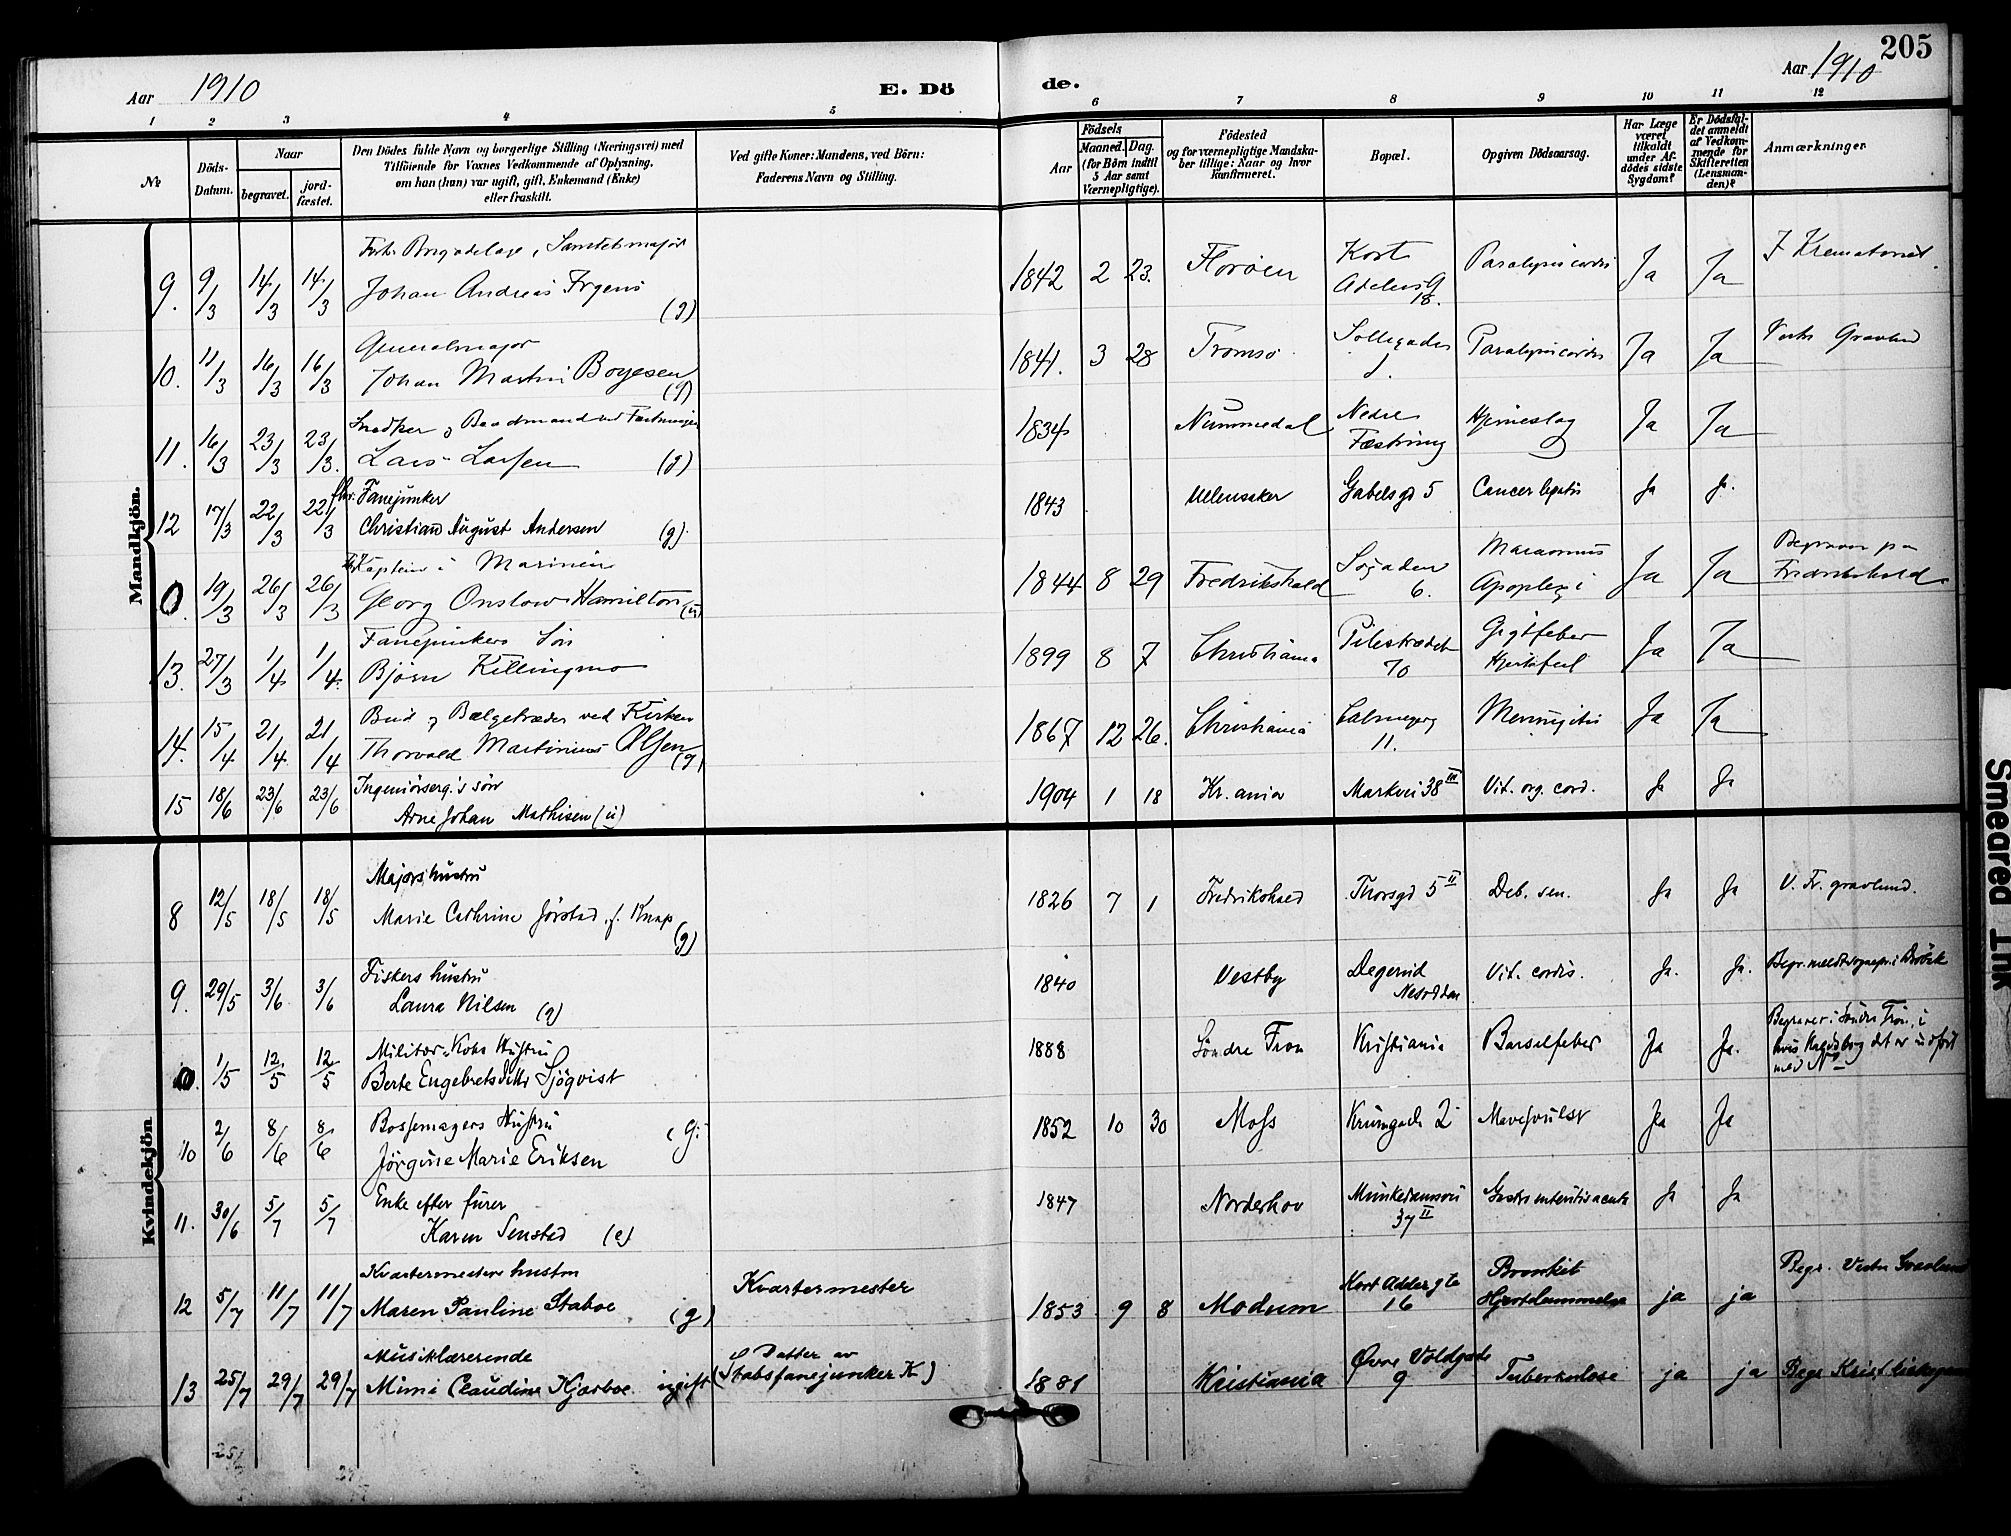 205
Aar 1910
E. Dö de.
Aar 1910
1 2 3 4 5 6 7 8 9 10 11 12
№
Döds-Datum.
Naar
begravet.
jord-fæstet.
Den Dödes fulde Navn og borgerlige Stilling (Næringsvei) med
Tilföiende for Voxnes Vedkommende af Oplysning,
om han (hun) var ugift, gift, Enkemand (Enke)
eller fraskilt.
Ved gifte Koner: Mandens, ved Börn:
Faderens Navn og Stilling.
Födsels
Aar
Maaned. Dag.
(for Börn indtil
5 Aar samt
Værnepligtige).
Födested
og for værnepligtige Mandska-
ber tillige: Naar og hvor
konfirmeret.
Bopæl.
Opgiven Dödsaarsag.
Har Læge
været
tilkaldt
under Af-
dödes sidste
Sygdom?
Er Dödsfal-
det anmeldt
af Vedkom-
mende for
Skifteretten
(Lensman-
den)?
Anmærkninger
Mandkjön.
9. 9/3 14/3 14/3 Brigadelæge, Sanitetsmajor
Johan Andreas Irgens (g) 1842 2 23. Florøen Kort Adelers G 18. Paralysis cordis Ja Ja I Krematoriet.
10. 11/3 16/3 16/3 Generalmajor
Johan Martin Boyesen (g) 1841. 3 28 Tromsø Solligaden 1. Paralysis cordis Ja Ja Vestre Gravlund
11. 16/3 23/3 23/3. Snedker og Baadmand ved Fæstningen
Lars Larsen (g) 1834 Nummedal Nedre Fæstning Hjerneslag Ja Ja
12 17/3 22/3 22/3 fhv. Fanejunker
Christian August Andersen (g). 1843 Ullensaker Gabelsgd 5 Cancer Ja Ja.
0. 19/3 26/3 26/3 Kaptein i Marinen
Georg Onslow Hamilton (u) 1844 8 29 Fredrikshald Søgaden 6. Marasmus Apoplexi Ja Ja Begraven paa Fredrikshald
13. 27/3 1/4 1/4. Fanejunkers Søn
Bjørn Killingmo 1899 8 7 Christiania Pilestrædet 70 Gigtfeber Hjertefeil Ja Ja
14. 15/4 21/4 21/4 Bud og Bælgetræder ved Kirken
Thorvald Martinius Olsen (g) 1867 12 26. Christiania Calmeyerg 11. Meningitis Ja Ja
15 18/6 23/6 23/6 Ingeniörserg.'s sön
Arne Johan Mathisen (u) 1904 1 18 Kr.ania Markvei 38 III Vit. org. cord. Ja Ja
Kvindekjön
8 12/5 18/5 18/5 Majors hustru
Marie Cathrine Jörstad, f. Knap (g) 1826 7 1 Fredrikshald Thorsgd 5 II Deb. sen. Ja Ja V. Fr. gravlund.
9. 29/5 3/6 3/6 Fiskers hustru
Laura Nilsen (g) 1840 Vestby Degerud Nesodden Vit. cordis. Ja. Ja. Begr. meldt sognepr. i Dröbak
0. 1/5 12/5 12/5 Militær Koks Hustru
Berte Engebretsdatter Sjöqvist 1888 Söndre Fron Kristiania Barselfeber Ja Ja. Begraver i Söndre Fron, i
hvis Kirkebog det er indfört
med No
10 2/6 8/6 8/6 Bossemagers Hustru
Jörgine Marie Eriksen (g. 1852 10 30 Moss Krumgade 2 Mavesvulst Ja Ja
11. 30/6 5/7 5/7 Enke efter furer
Karen Senstad (e) 1847 Norderhov Munkedamsvei 37 II Gastro enteritis acuta Ja Ja
12 5/7 11/7 11/7 Kvartermesters hustru
Maren Pauline Staboe (g) Kvartermester 1853 9 8 Modum Kort Addersgte 16 Bronkit Hjertelammelse ja ja Begr. Vestre Gravlund
13 25/7 29/7 29/7 Musiklærerinde
Mimi Claudine Kjærboe ugift (Datter av
Stabsfanejunker K) 1881 Kristiania Øvre Voldgade 9 Tuberkulose ja ja Begr Krist kirkegaard
25/
Smeared Ink